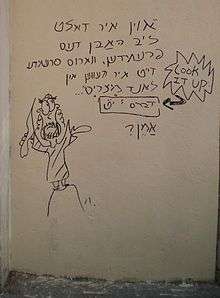 און איר זאלט
ליב האבן דעם
פרעמדען, ווארום פרעמדע
זיט איר געווען אין
לאנד מצרים...
דברים י:יט
LOOK
IT UP
אמן?